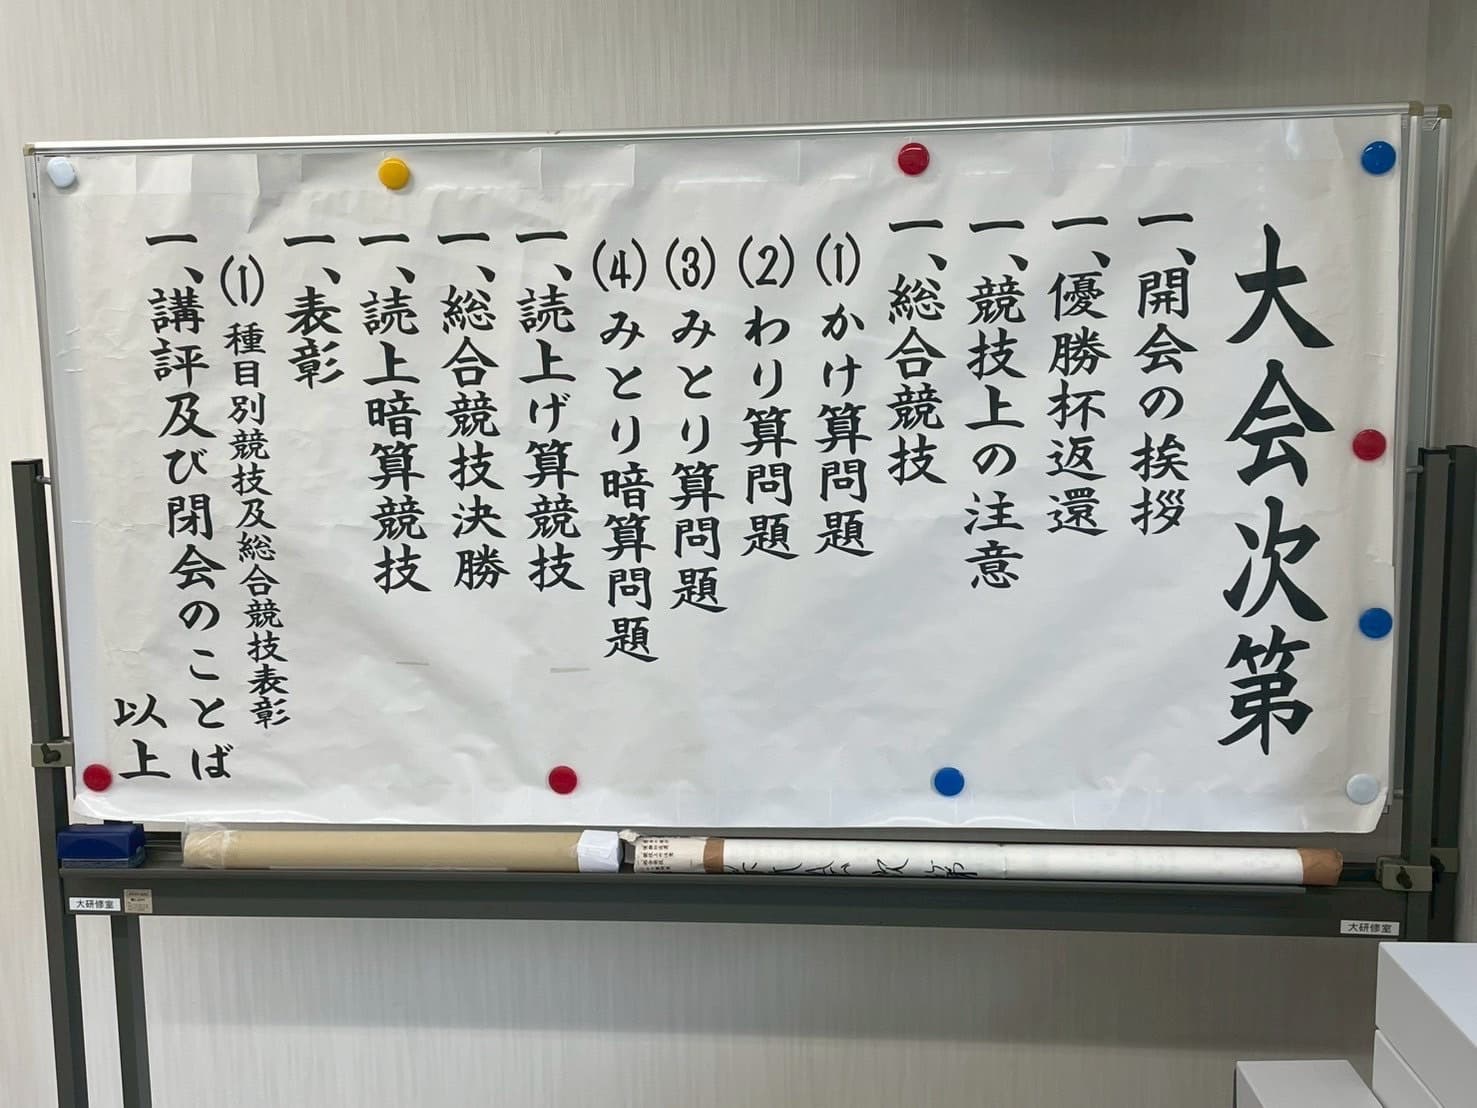 大会次第
一、開会の挨拶
一、優勝杯返還
一、競技上の注意
一、総合競技
(1)かけ算問題
(2)わり算問題
(3)みとり算問題
(4)みとり暗算問題
一、読上げ算競技
一、総合競技決勝
一、読上暗算競技
一、表彰
(1)種目別競技及総合競技表彰
一、講評及び閉会のことば
以上
大研修室
大研修室